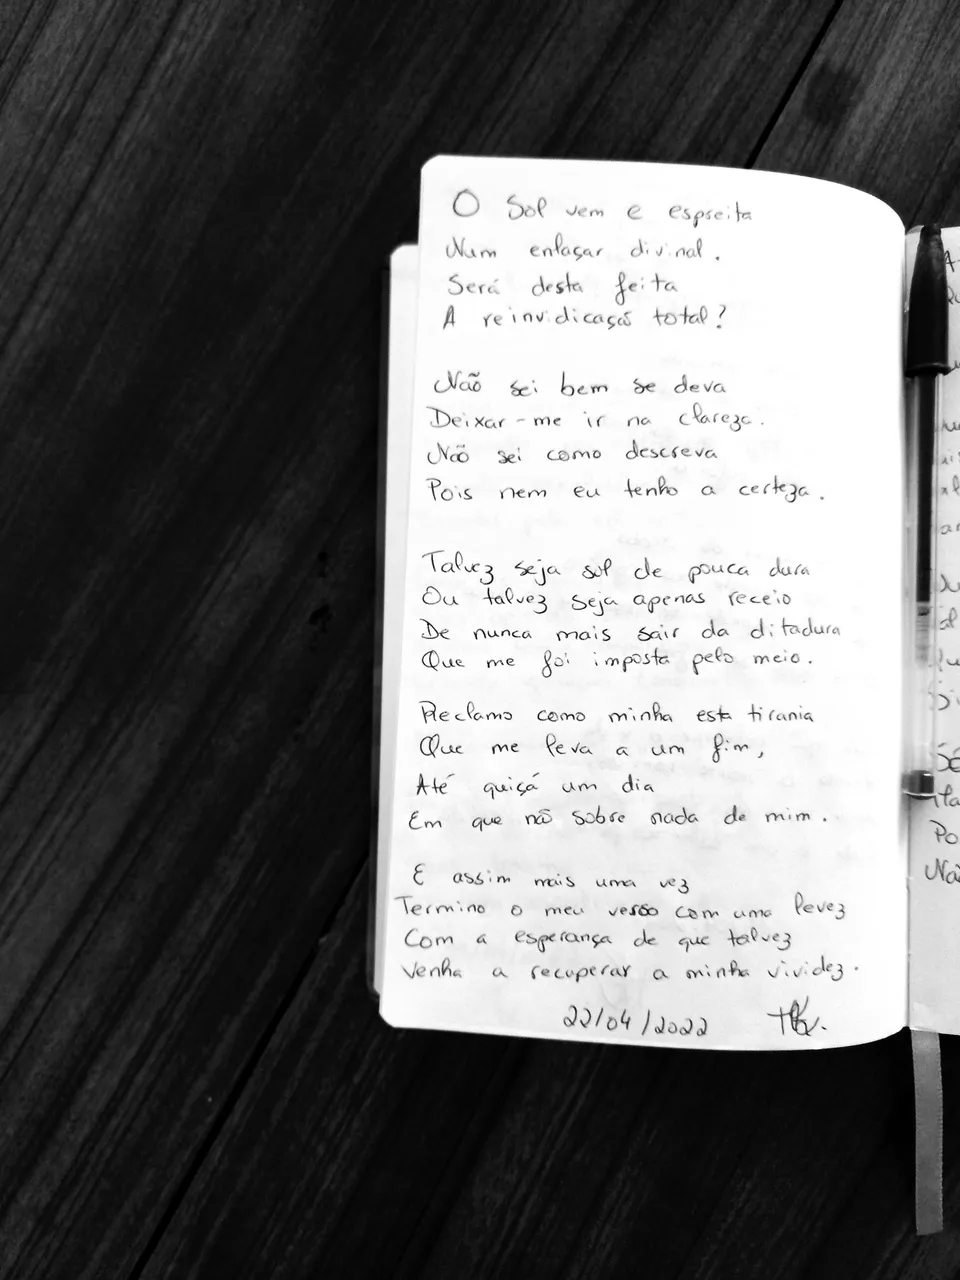 O Sol vem e espreita
Num enlaçar divinal.
Será desta feita
A reinvidicação total?
Não sei bem se deva
Deixar-me ir na clareza.
Não sei como descreva
Pois nem eu tenho a certeza.
Talvez seja sol de pouca dura
Ou talvez seja apenas receio
De nunca mais sair da ditadura
Que me foi imposta pelo meio.
Reclamo como minha esta tirania
Que me leva a um fim,
Até quiçá um dia
Em que não sobre nada de mim.
E assim mais uma vez
Termino o meu verso com uma levez
Com a esperança de que talvez
Venha a recuperar a minha vividez.
22/04/2022